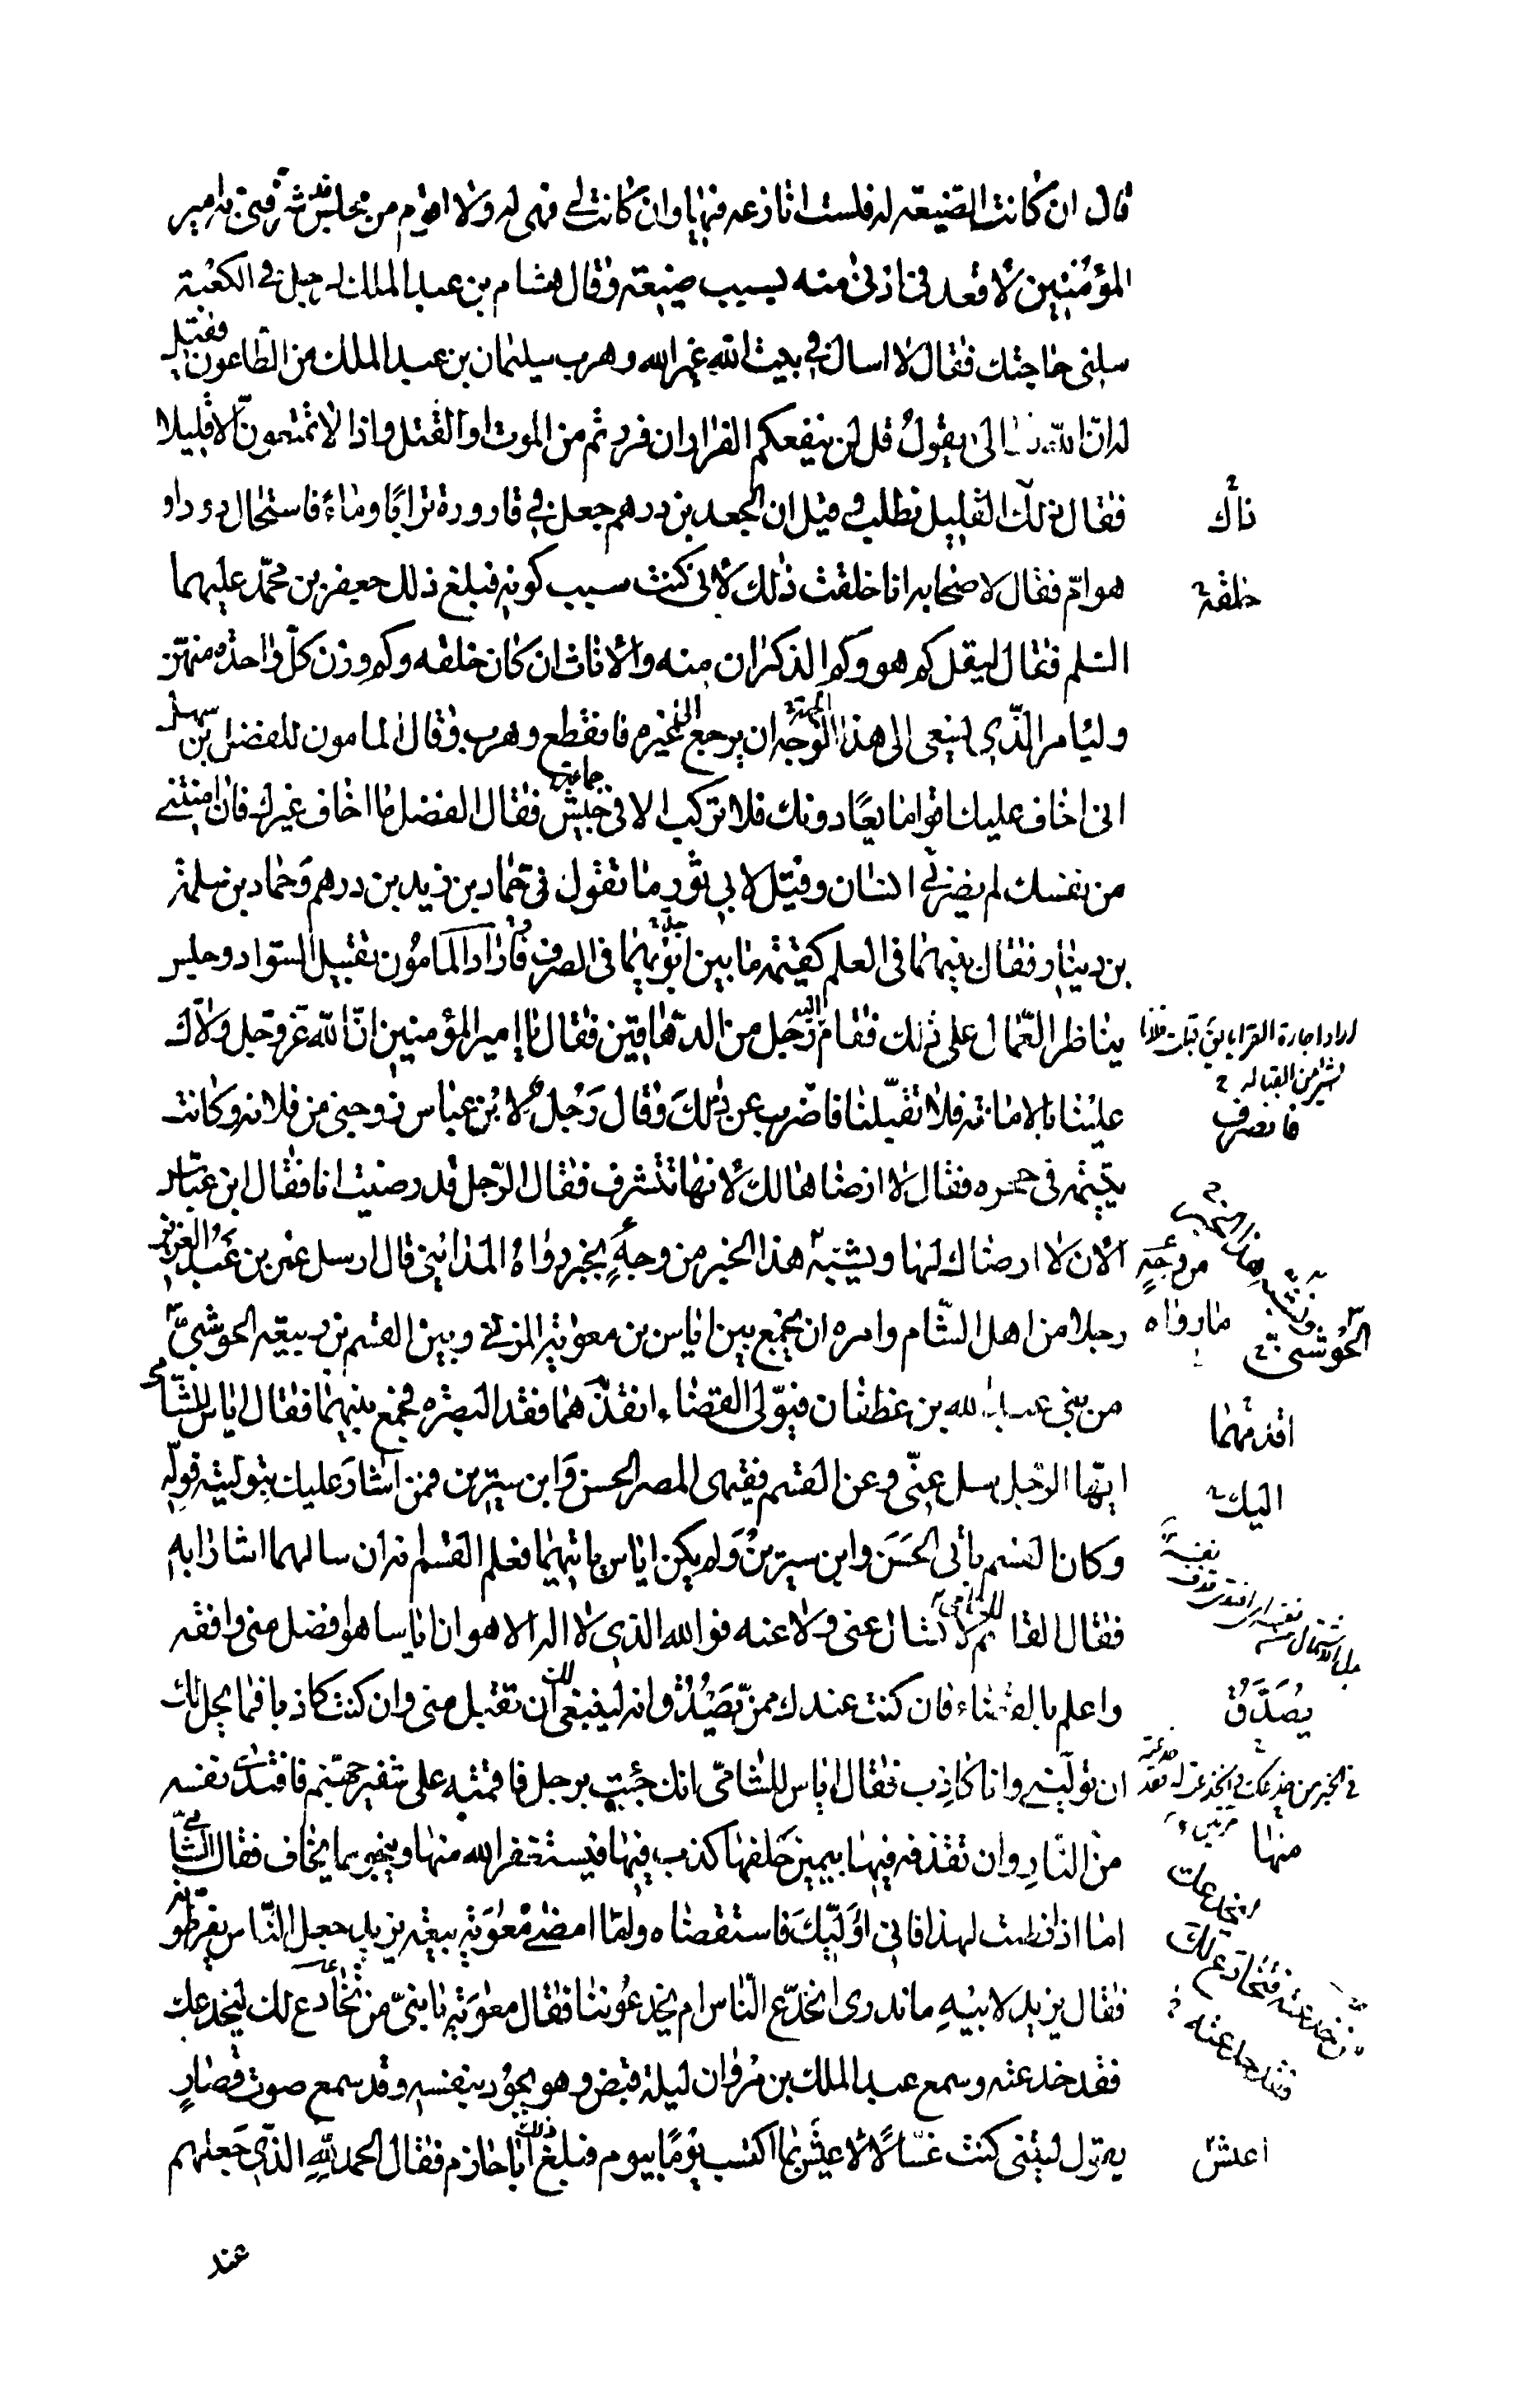 قال ان كانت الضيعة له فلست انازعه فيها وان كانت لي فهي له ولا اقوم من مجلس شرفني به امير
المؤمنين لاقعد في ادنى منه بسبب ضيعة وقال هشام بن عبد الملك لرجل في الكعبة
سلني حاجتك فقال لا اسال في بيت الله غير الله وهرب سليمان بن عبد الملك من الطاعون فقيل
له ان الله تعالى يقول قل لن ينفعكم الفرار ان فررتم من الموت او القتل واذا لا تمتعون الا قليلا
فقال ذلك القليل نطلب وقيل ان الجعد بن درهم جعل في قارورة ترابا وماء فاستحال دودا و
هوام فقال لاصحابه انا خلقت ذلك لاني كنت سبب كونه فبلغ ذلك جعفر بن محمد عليهما
السلم فقال ليقل كم هو وكم الذكران منه والاناث ان كان خلقه وكم وزن كل واحدة منهن
وليامر الذي يسعى الى هذا الوجه ان يرجع الى غيره فانقطع وهرب وقال المامون للفضل بن سهل
اني اخاف عليك اقواما يعادونك فلا تركب الا في جيش فقال الفضل ما اخاف غيرك فان امنتني
من نفسك لم يضرني انسان وقيل لابي ثور ما تقول في حماد بن زيد بن درهم وحماد بن سلمة
بن دينار فقال بينهما في العلم كقيمة ما بين ابويهما في الصرف واراد المامون تقبيل السواد وجلس
يناظر العمال على ذلك فقام اليه رجل من الدهاقين فقال يا امير المؤمنين ان الله عز وجل ولاك
علينا بالامانة فلا تقبلنا فاضرب عن ذلك وقال رجل لابن عباس زوجني من فلانة وكانت
يتيمة في حجره فقال لا ارضاها لك لانها تتشرف فقال الرجل قد رضيت انا فقال ابن عباس
الان لا ارضاك لها ويشبه هذا الخبر من وجه بخبر رواه المدائني قال ارسل عمر بن عبد العزيز
رجلا من اهل الشام وامره ان يجمع بين اياس بن معوية المزني وبين القسم بن ربيعة الحوشي
من بني عبد الله بن غطفان فيولى القضاء انفذهما فقد البصرة فجمع بينهما فقال اياس للشامي
ايها الرجل سل عني وعن القسم فقيهي المصر الحسن وابن سيرين فمن اشار عليك بتوليته فوله
وكان القسم ياتي الحسن وابن سيرين ولم يكن اياس ياتيهما فعلم القسم انه ان سالهما اشارا به
فقال القاسم للشامي لا تسال عني ولا عنه فوالله الذي لا اله الا هو ان اياسا هو افضل مني وافقه
واعلم بالقضاء فان كنت عندك ممن يصدق وانه لينبغي لك ان تقبل مني وان كنت كاذبا فما يحل لك
ان توليني وانا كاذب فقال اياس للشامي انك جئت برجل فاقمته على شفير جهنم فافتدى نفسه
من النار وان تقذفه فيها بيمين حلفها كذب فيها فيستغفر الله منها وينجو مما يخاف فقال الشامي
اما اذ فطنت لهذا فاني اوليك فاستقضاه ولما امضى معوية بيعة يزيد جعل الناس يقرظونه
فقال يزيد لابيه ما ندري انخدع الناس ام يخدعوننا فقال معوية يا بني من تخادع لك ليخدعك
فقد خدعته وسمع عبد الملك بن مروان ليلة قبض وهو يجود بنفسه وقد سمع صوت قصار
يقول ليتني كنت غسالا لا اعيش بما اكتسب يوما بيوم فبلغ ذلك ابا حازم فقال الحمد لله الذي جعلهم
عند
ذاك
خلقة
فانصرف
من وجه
ما رواه
الحوشني
اقدمهما
اليك
يصدق
منها
اعش